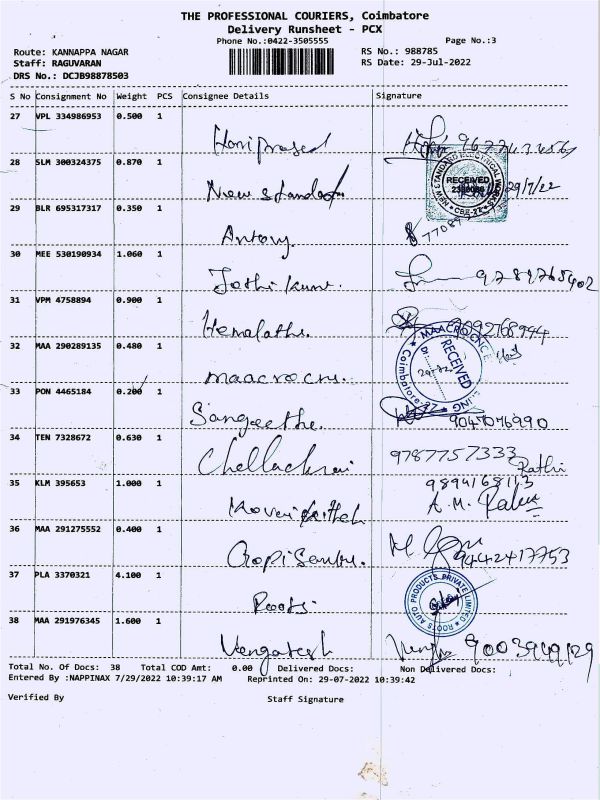 THE PROFESSIONAL COURIERS, Coimbatore
Delivery Runsheet - PCX
Phone No.:0422-3505555 Page No.:3
Route: KANNAPPA NAGAR RS No.: 988785
Staff: RAGUVARAN RS Date: 29-Jul-2022
DRS No.: DCJB98878503
S No Consignment No Weight PCS Consignee Details Signature
27 VPL 334986953 0.500 1
Hariprased
28 SLM 300324375 0.870 1
RECEIVED
New Standard 29/7/22
29 BLR 695317317 0.350 1
Antony.
30 MEE 530190934 1.060 1
Jothi kumr. 9789765402
31 VPM 4758894 0.900 1
Hemalathe.
32 MAA 290289135 0.480 1
RECEIVED
33 PON 4465184 0.200 1
Sangeethe. 9047076990
34 TEN 7328672 0.630 1
9787757333
Rathi
35 KLM 395653 1.000 1
9894168113
36 MAA 291275552 0.400 1
9442417753
37 PLA 3370321 4.100 1
ROOTS AUTO PRODUCTS PRIVATE LIMITED
Roots.
38 MAA 291976345 1.600 1
Vengatesh
Total No. Of Docs: 38 Total COD Amt: 0.00 Delivered Docs: Non Delivered Docs:
Entered By :NAPPINAX 7/29/2022 10:39:17 AM Reprinted On: 29-07-2022 10:39:42
Verified By Staff Signature